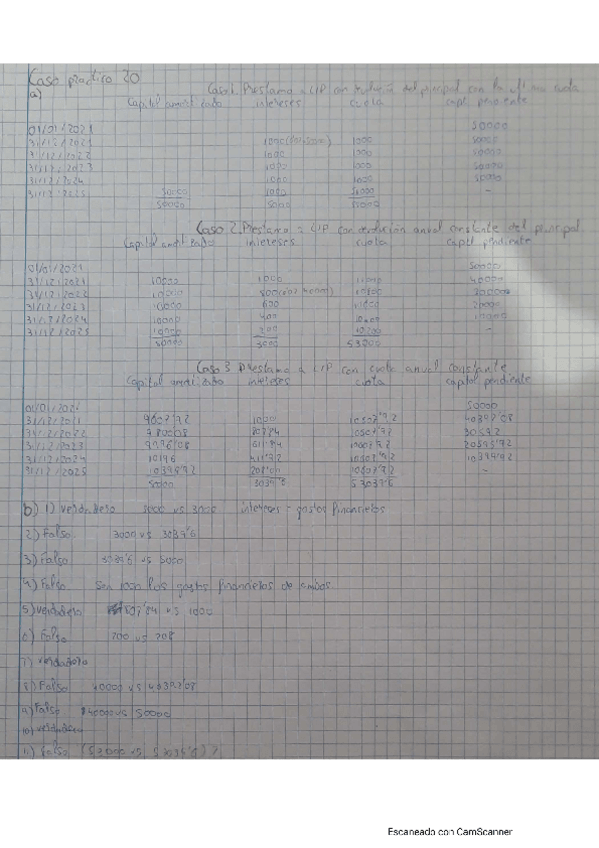 Caso practico 20
a) Caso 1. Prestamo a L/P con devolución del principal con la última cuota
Capital amortizado intereses cuota capt. pendiente
01/01/2021 50000
31/12/2021 1000 1000 50000
31/12/2022 1000 1000
31/12/2023 1000 1000 50000
31/12/2024 1000 1000 50000
31/12/2025 50000 1000 51000 -
50000 5000 55000
Caso 2. Prestamo a L/P con devolución anual constante del principal
Capital amortizado intereses cuota capit pendiente
01/01/2021 50000
31/12/2021 10000 1000 11000 40000
31/12/2022 10000 800 10800 30000
31/12/2023 10000 600 20000
31/12/2024 10000 400 10400 10000
31/12/2025 10000 200 10200 -
50000 3000 53000
Caso 3 Prestamo a L/P con cuota anual constante
Capital amortizado intereses cuota capital pendiente
50000
31/12/2021 9607'92 1000 10607'92 40392'08
31/12/2022 807'84 10607'92 30592
31/12/2023 611'84 20595'92
31/12/2024 10196 10399'92
31/12/2025 10399'92 208'00 10607'92 -
50000 3039'6 53039'6
b) 1) Verdadero 5000 vs 3000 intereses - gastos financieros
2) Falso 3000 vs 3039'6
3) Falso 3039'6 vs 5000
4) Falso Son 1000 los gastos financieros de ambos
5) Verdadero 807'84 vs 1000
6) Falso 200 vs 208
7) Verdadero
8) Falso 40000 vs 40392'08
9) Falso 40000 vs 50000
10) Verdadero
11) Falso (53000 vs 53039'6)?
Escaneado con CamScanner